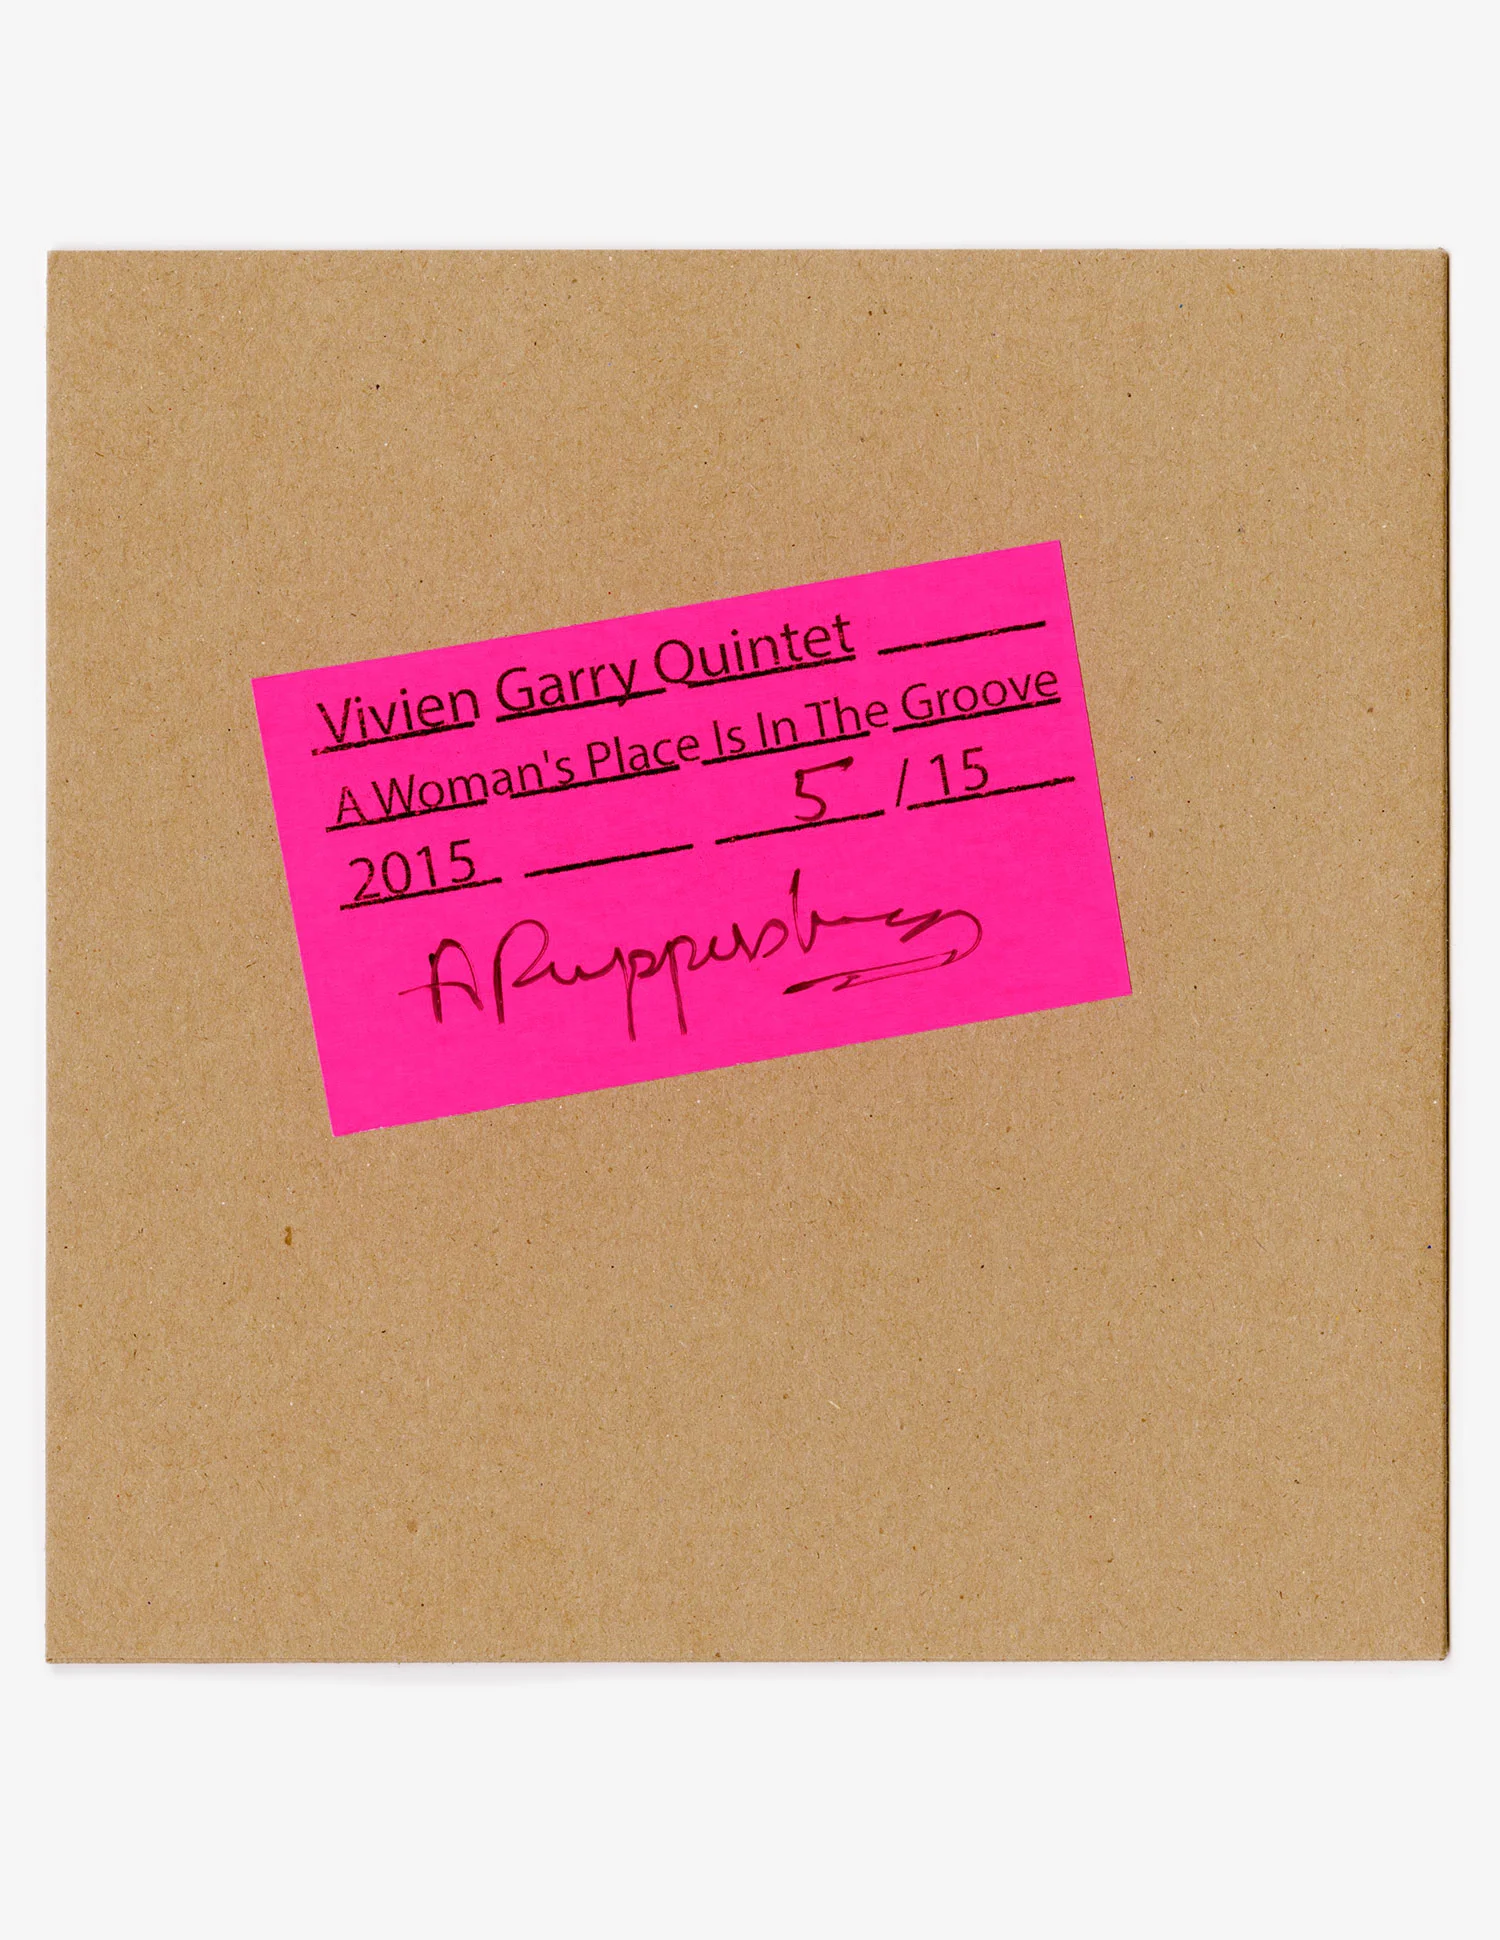 Vivien Garry Quintet
A Woman's Place Is In The Groove
2015 5 / 15
A Ruppersberg